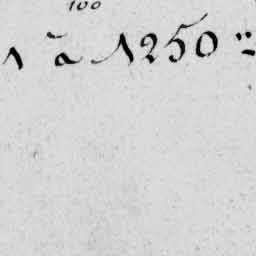 100
1 à 1250"